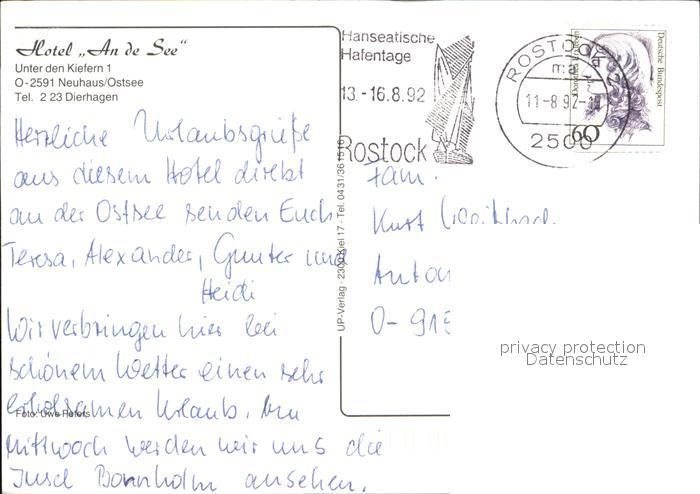 Hotel „An de See“
Unter den Kiefern 1
O-2591 Neuhaus/Ostsee
Tel. 2 23 Dierhagen
Herzliche Urlaubsgrüße
aus diesem Hotel direkt
an der Ostsee senden Euch
Teresa, Alexander, Gunter und
Heidi
Wir verbringen hier bei
schönem Wetter einen sehr
erholsamen Urlaub. Am
Mittwoch werden wir uns die
Insel Bornholm ansehen.
Foto: Uwe Peters
UP-Verlag · 2300 Kiel 17 · Tel. 0431/361516
Hanseatische
Hafentage
13.-16.8.92
Rostock
ROSTOCK
ma
11-8.92
2500
Deutsche Bundespost
60
Fam.
Kurt
Anton
O-915
privacy protection
Datenschutz